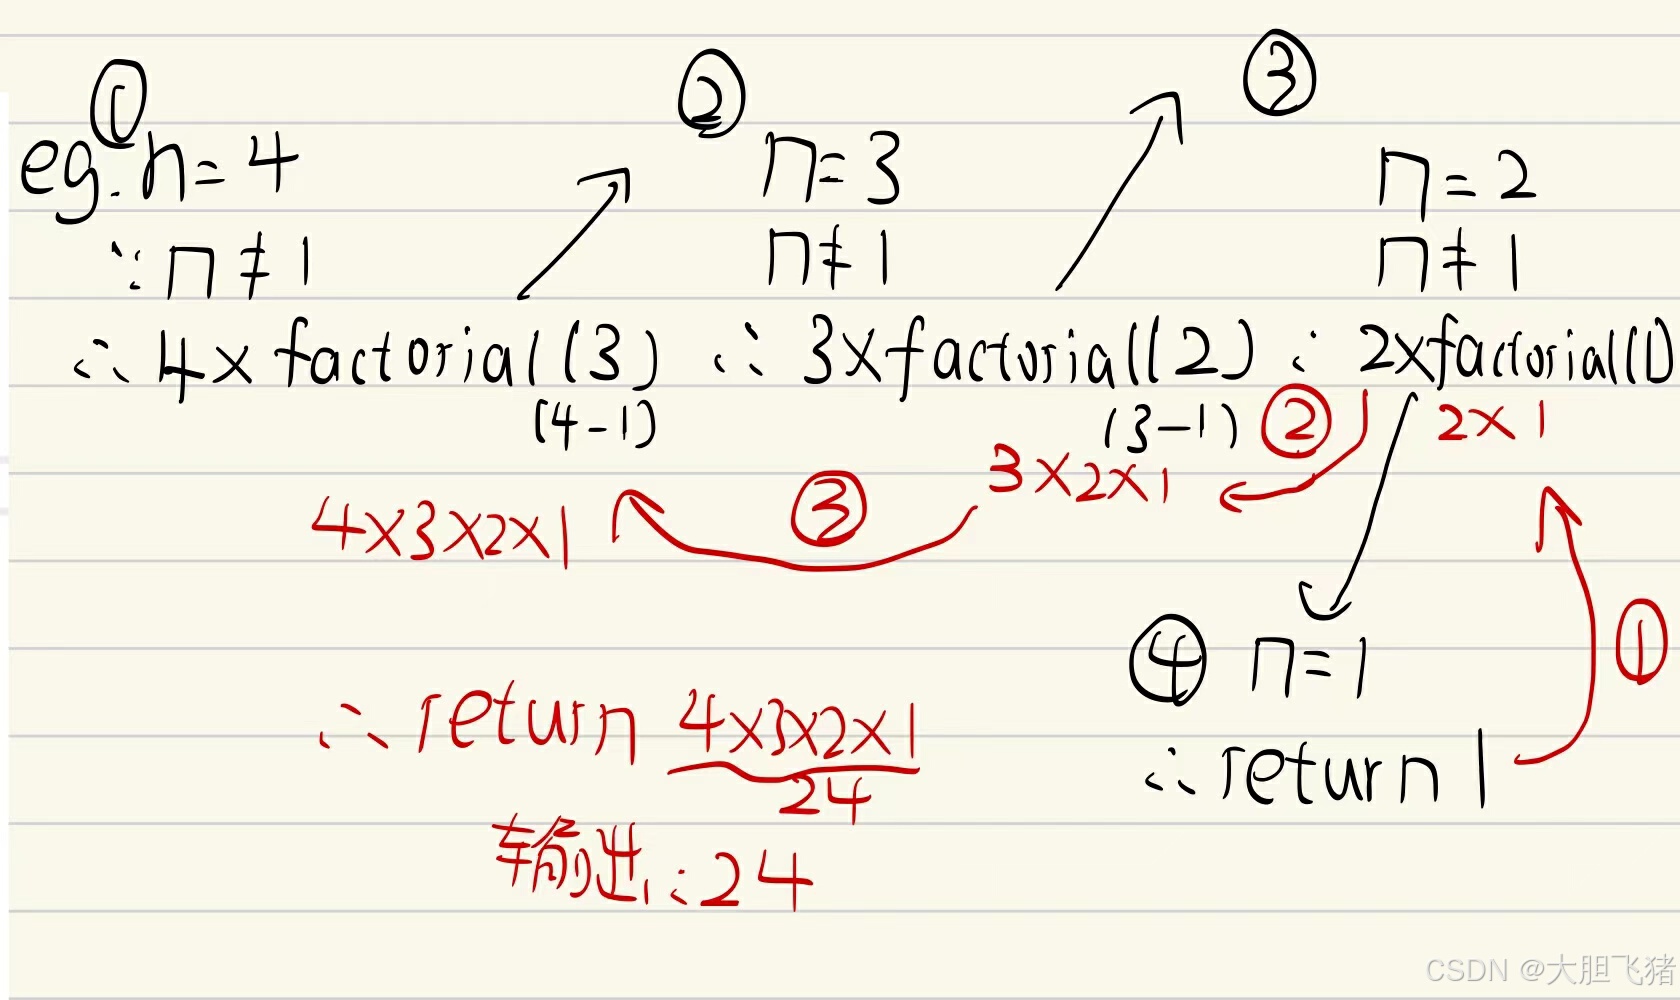 ①
eg. n=4
∵ n≠1
∴ 4×factorial(3)
(4-1)
4×3×2×1
②
n=3
n≠1
∴ 3×factorial(2)
(3-1)
3×2×1
③
n=2
n≠1
∴ 2×factorial(1)
2×1
②
③
④ n=1
∴ return 1
①
∴ return 4×3×2×1
24
输出: 24
CSDN @大胆飞猪